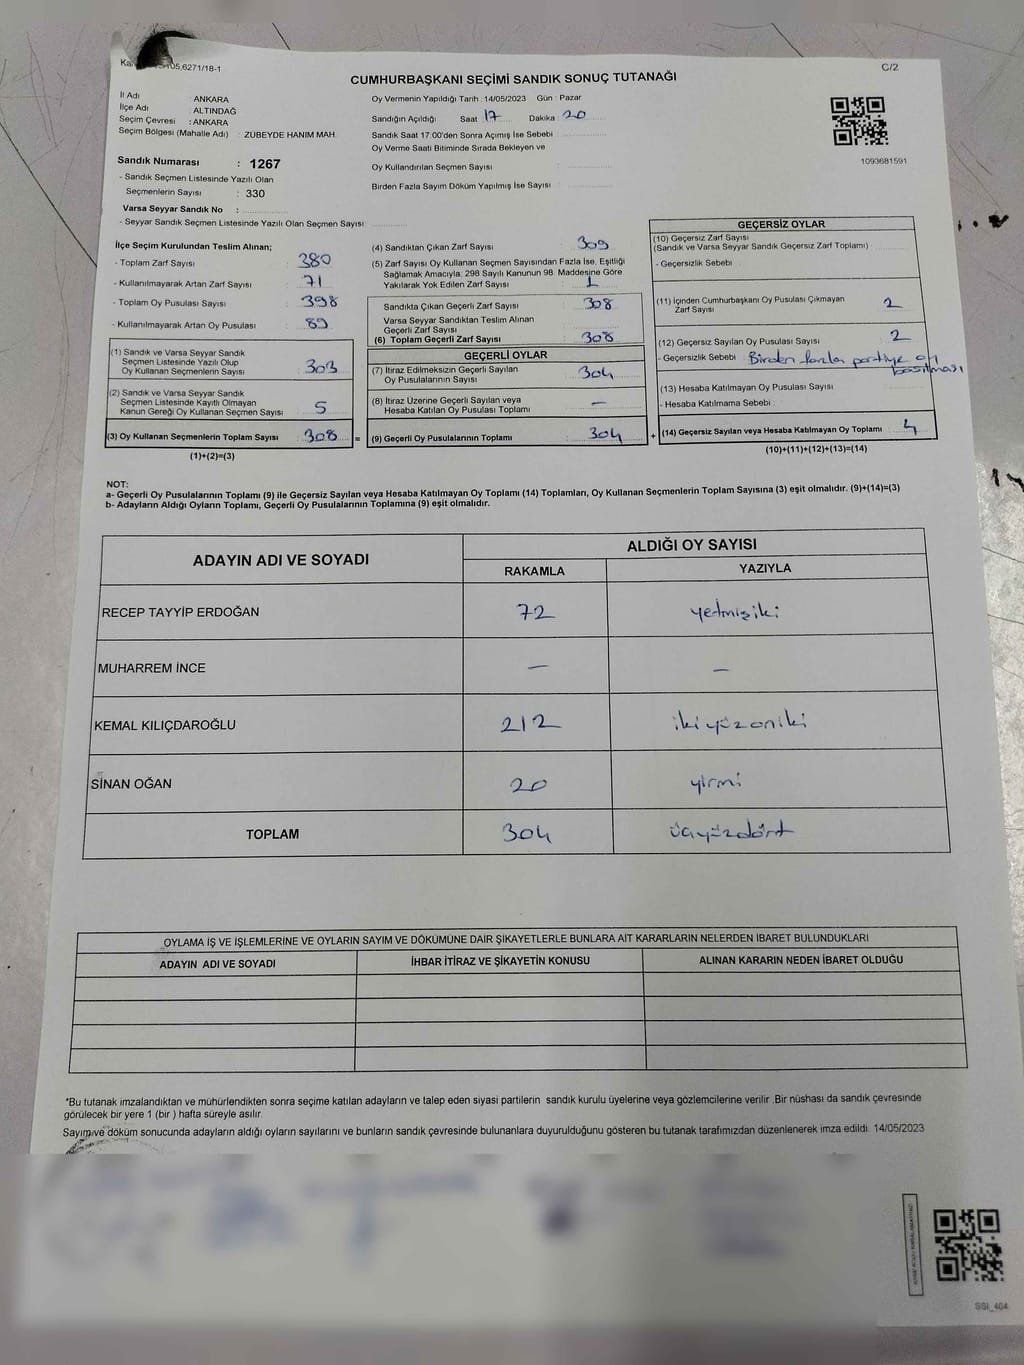 05,6271/18-1
C/2
CUMHURBAŞKANI SEÇİMİ SANDIK SONUÇ TUTANAĞI
İl Adı : ANKARA
İlçe Adı : ALTINDAĞ
Seçim Çevresi : ANKARA
Seçim Bölgesi (Mahalle Adı) : ZÜBEYDE HANIM MAH.
Oy Vermenin Yapıldığı Tarih :14/05/2023 Gün : Pazar
Sandığın Açıldığı Saat 17 Dakika : 20
Sandık Saat 17:00'den Sonra Açımış İse Sebebi :
Oy Verme Saati Bitiminde Sırada Bekleyen ve
Oy Kullandırılan Seçmen Sayısı :
Birden Fazla Sayım Döküm Yapılmış İse Sayısı :
1093681591
Sandık Numarası : 1267
- Sandık Seçmen Listesinde Yazılı Olan
Seçmenlerin Sayısı : 330
Varsa Seyyar Sandık No :
- Seyyar Sandık Seçmen Listesinde Yazılı Olan Seçmen Sayısı:
İlçe Seçim Kurulundan Teslim Alınan;
- Toplam Zarf Sayısı : 380
- Kullanılmayarak Artan Zarf Sayısı : 71
- Toplam Oy Pusulası Sayısı : 398
- Kullanılmayarak Artan Oy Pusulası : 89
(1) Sandık ve Varsa Seyyar Sandık
Seçmen Listesinde Yazılı Olup
Oy Kullanan Seçmenlerin Sayısı : 303
(2) Sandık ve Varsa Seyyar Sandık
Seçmen Listesinde Kayıtlı Olmayan
Kanun Gereği Oy Kullanan Seçmen Sayısı : 5
(3) Oy Kullanan Seçmenlerin Toplam Sayısı : 308 =
(1)+(2)=(3)
(4) Sandıktan Çıkan Zarf Sayısı : 309
(5) Zarf Sayısı Oy Kullanan Seçmen Sayısından Fazla İse, Eşitliği
Sağlamak Amacıyla; 298 Sayılı Kanunun 98. Maddesine Göre
Yakılarak Yok Edilen Zarf Sayısı : 1
Sandıkta Çıkan Geçerli Zarf Sayısı : 308
Varsa Seyyar Sandıktan Teslim Alınan
Geçerli Zarf Sayısı :
(6) Toplam Geçerli Zarf Sayısı : 308
GEÇERLİ OYLAR
(7) İtiraz Edilmeksizin Geçerli Sayılan
Oy Pusulalarının Sayısı : 304
(8) İtiraz Üzerine Geçerli Sayılan veya
Hesaba Katılan Oy Pusulası Toplamı : —
(9) Geçerli Oy Pusulalarının Toplamı : 304 +
GEÇERSİZ OYLAR
(10) Geçersiz Zarf Sayısı
(Sandık ve Varsa Seyyar Sandık Geçersiz Zarf Toplamı) :
- Geçersizlik Sebebi :
(11) İçinden Cumhurbaşkanı Oy Pusulası Çıkmayan
Zarf Sayısı : 2
(12) Geçersiz Sayılan Oy Pusulası Sayısı : 2
- Geçersizlik Sebebi : Birden fazla partiye oy
basılması
(13) Hesaba Katılmayan Oy Pusulası Sayısı :
- Hesaba Katılmama Sebebi :
(14) Geçersiz Sayılan veya Hesaba Katılmayan Oy Toplamı : 4
(10)+(11)+(12)+(13)=(14)
NOT:
a- Geçerli Oy Pusulalarının Toplamı (9) ile Geçersiz Sayılan veya Hesaba Katılmayan Oy Toplamı (14) Toplamları, Oy Kullanan Seçmenlerin Toplam Sayısına (3) eşit olmalıdır. (9)+(14)=(3)
b- Adayların Aldığı Oyların Toplamı, Geçerli Oy Pusulalarının Toplamına (9) eşit olmalıdır.
ADAYIN ADI VE SOYADI ALDIĞI OY SAYISI
RAKAMLA YAZIYLA
RECEP TAYYİP ERDOĞAN 72 yetmişiki
MUHARREM İNCE — —
KEMAL KILIÇDAROĞLU 212 ikiyüzoniki
SİNAN OĞAN 20 yirmi
TOPLAM 304 üçyüzdört
OYLAMA İŞ VE İŞLEMLERİNE VE OYLARIN SAYIM VE DÖKÜMÜNE DAİR ŞİKAYETLERLE BUNLARA AİT KARARLARIN NELERDEN İBARET BULUNDUKLARI
ADAYIN ADI VE SOYADI İHBAR İTİRAZ VE ŞİKAYETİN KONUSU ALINAN KARARIN NEDEN İBARET OLDUĞU
*Bu tutanak imzalandıktan ve mühürlendikten sonra seçime katılan adayların ve talep eden siyasi partilerin sandık kurulu üyelerine veya gözlemcilerine verilir .Bir nüshası da sandık çevresinde
görülecek bir yere 1 (bir ) hafta süreyle asılır.
Sayım ve döküm sonucunda adayların aldığı oyların sayılarını ve bunların sandık çevresinde bulunanlara duyurulduğunu gösteren bu tutanak tarafımızdan düzenlenerek imza edildi. 14/05/2023
SSI_404